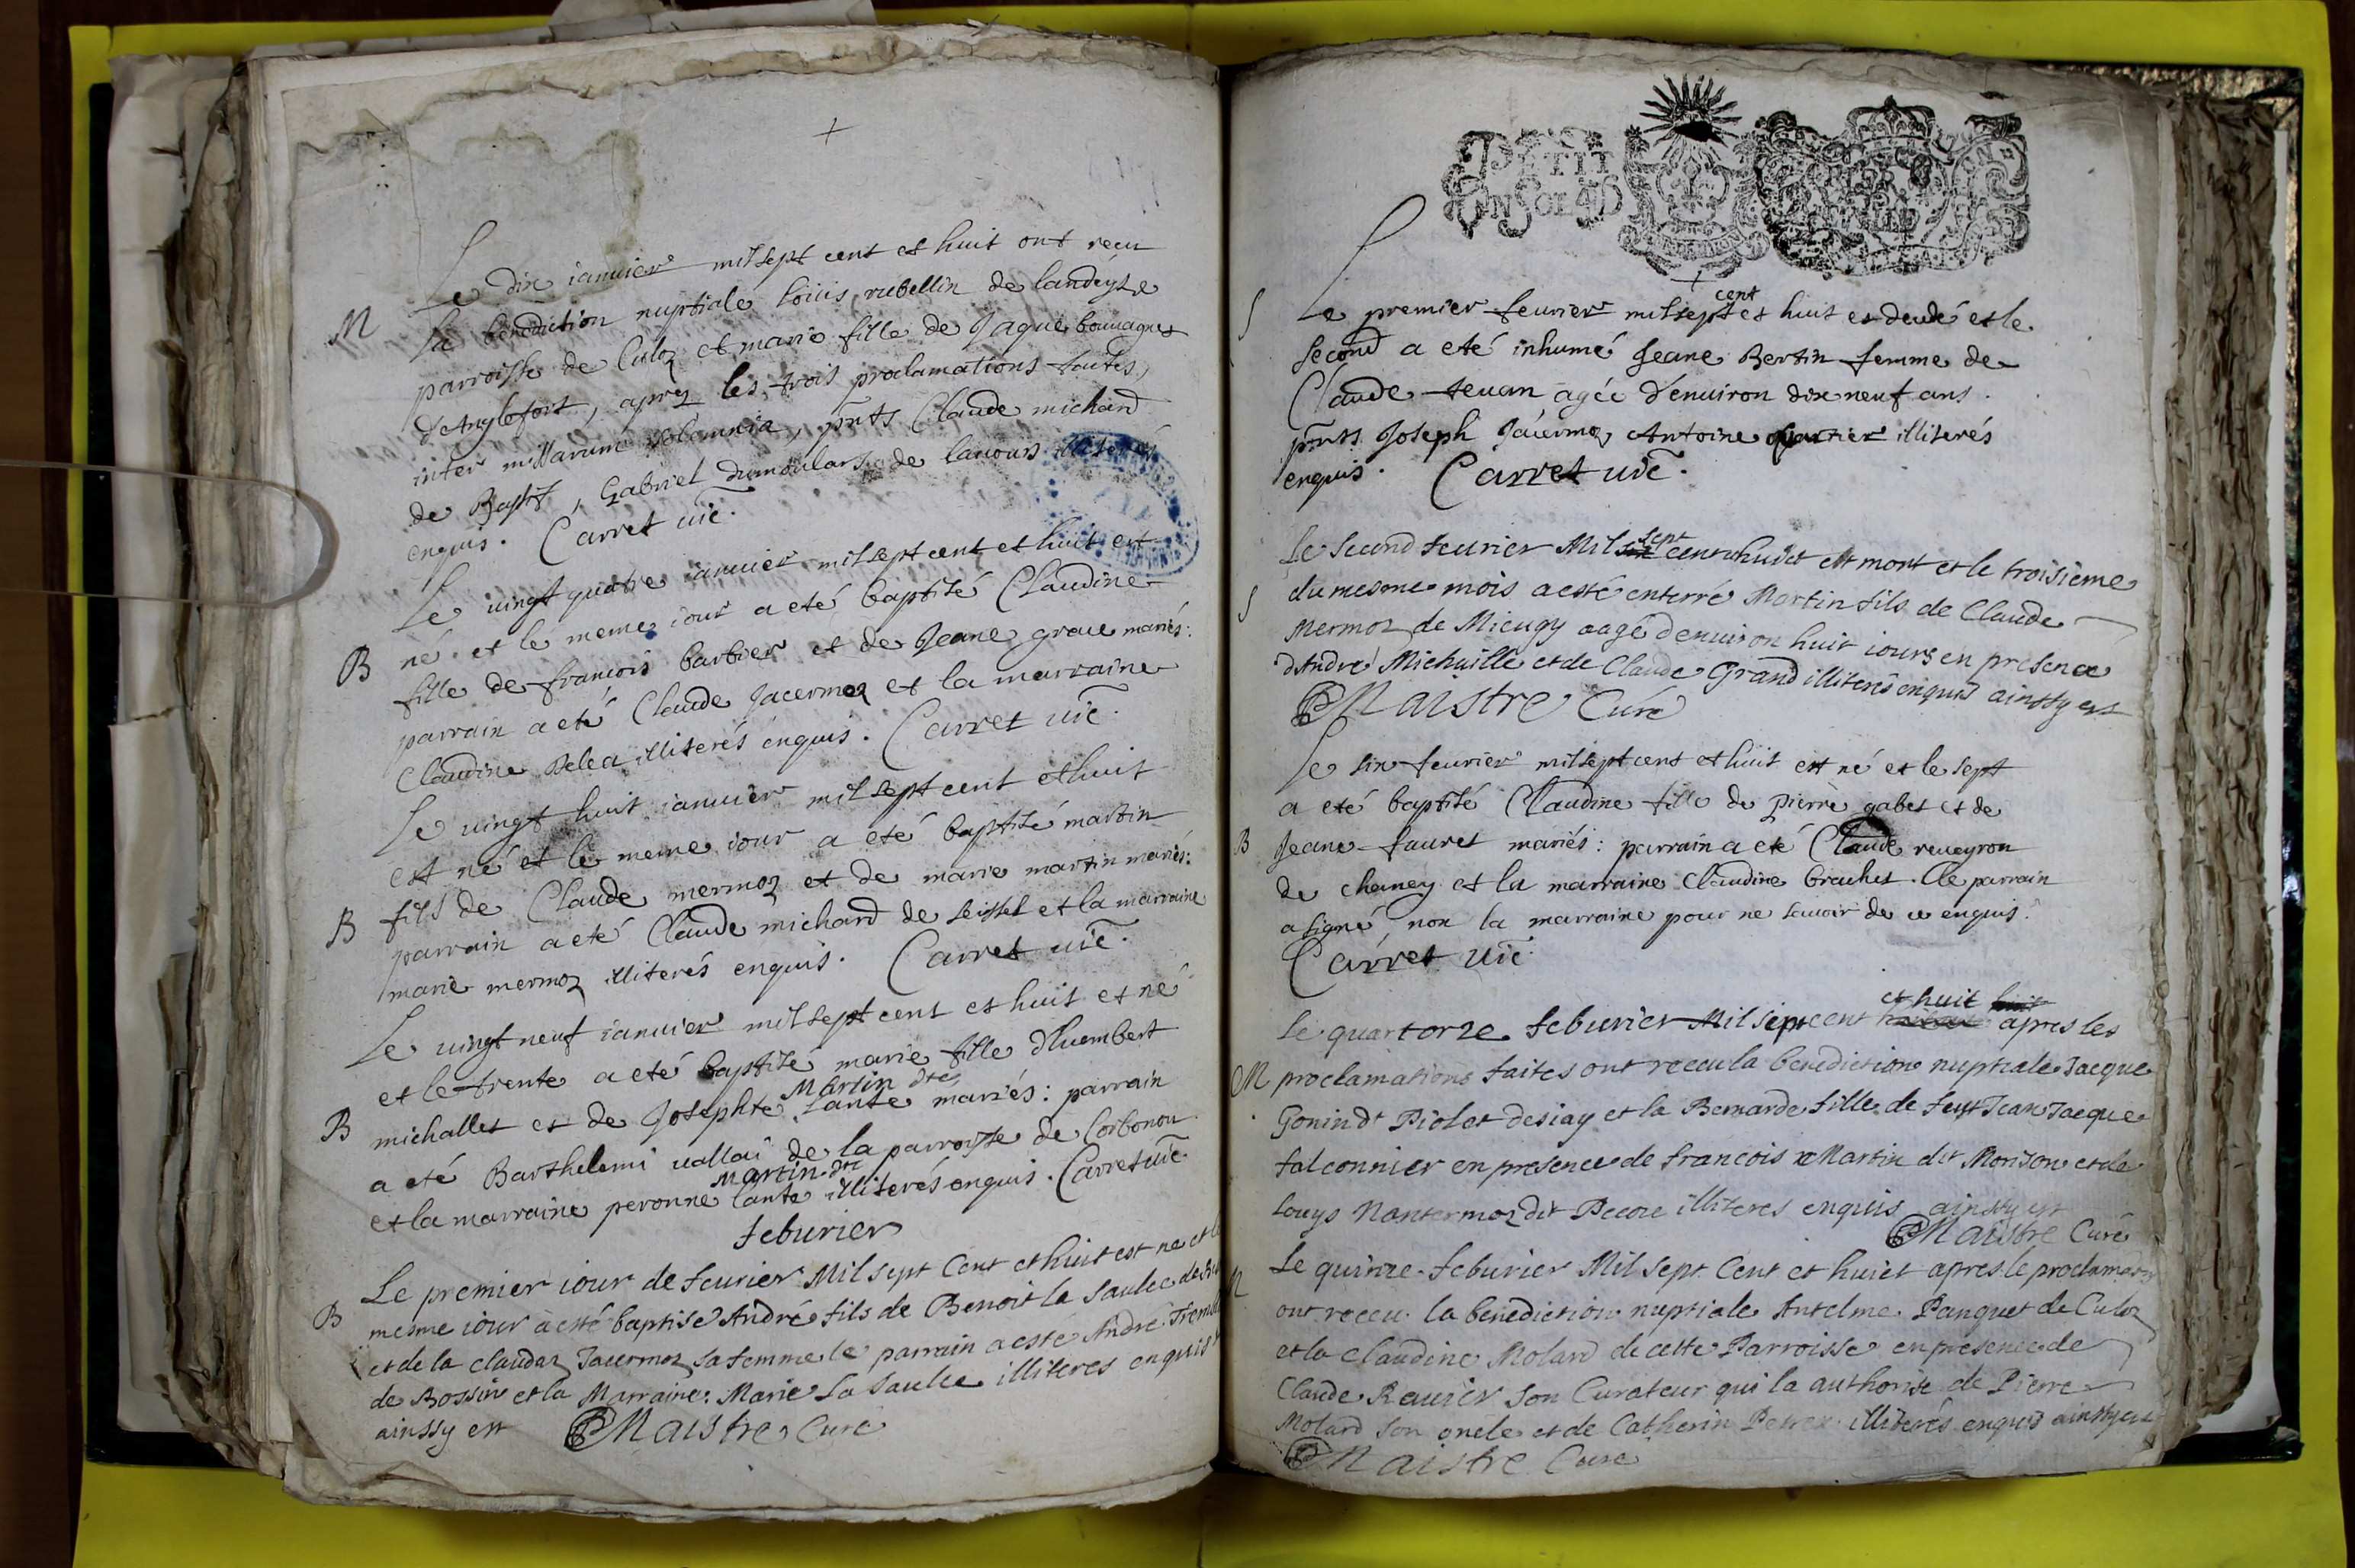 Le dix ianuier mil sept cent et huit ont recu
M la benediction nuptiale loüis rubellin de landeyse
parroisse de Culoz et marie fille de Jaque bouuagnet
d'Anglefort, aprez les trois proclamations faites,
inter missarum solemnia, pnts Claude michard
de Bassy, Gabriel dumoulars de lauours illiterés
enquis. Carret uic.
Le uingt quatre ianuier mil sept cent et huit est
B né et le meme iour a eté baptisé Claudine
fille de francois barbier et de Jeane graue mariés:
parrain a eté Claude Jacermoz et la marraine
Claudine Belea illiterés enquis. Carret uic.
Le uingt huit ianuier mil sept cent et huit
est né et le meme iour a eté baptisé martin
B fils de Claude mermoz et de marie martin mariés:
parrain a eté Claude michard de seissel et la marraine
marie mermoz illiterés enquis. Carret uic.
Le uingt neuf ianuier mil sept cent et huit et né
et le trente a eté baptisé marie fille d'huembert
Martin dte
B michallet et de Josephte Lante mariés: parrain
a eté Barthelemi uallai de la parroisse de Corbonou
Martin dte
et la marraine peronne lante illiterés enquis. Carret uic.
feburier
Le premier iour de feurier Mil sept Cent et huit est ne et le
B mesme iour a esté baptisé André fils de Benoit la Saulce de
et de la claudaz Jacermoz sa femme le parrain a este André
de Bossin et la Marraine Marie La Saulce illiteres enquis
ainssy est Maistre Curé
PETIT
EN SOLD
cent
S Le premier feurier mil sept et huit es decedé et le
second a eté inhumé Jeane Bertin femme de
Claude feuan agée d'enuiron dix neuf ans.
pnts Joseph Jacermoz, Antoine quartier illiterés
enquis. Carret uic.
sept
Le second feurier Mil six cent huit est mort et le troisieme
S du mesme mois a esté enterré Martin fils de Claude
Mermoz de Mieugy aagé denuiron huit iours en presence
d'André Michaille et de Claude Grand illiterés enquis ainssy est
Maistre Curé
Le six feurier mil sept cent et huit est né et le sept
a eté baptisé Claudine fille de pierre gabet et de
B Jeane fauret mariés: parrain a eté Claude reueyron
de chaney et la marraine Claudine brachet. Le parrain
a signé, non la marraine pour ne sauoir de ce enquis.
Carret uic.
et huit huit
Le quartorze feburier Mil sept cent apres les
M proclamations faites ont receu la benediction nuptiale Jacque
Gonin dt Piolet desiay et la Bernarde fille de feust Jean Jacque
falconnier en presence de francois Martin dit Morison et de
Louys Nantermoz dit Pecore illiteres enquis ainssy est
Maistre Curé
Le quinze feburier Mil sept Cent et huict apres le proclamaon
M ont receu la benediction nuptiale Antelme Panquet de Culoz
et la Claudine Molard de cette Parroisse en presence de
Claude Rauier son Curateur qui la authorise de Pierre
Molard son oncle et de Catherin Perrex illiterés enquis ainssy est
Maistre Curé